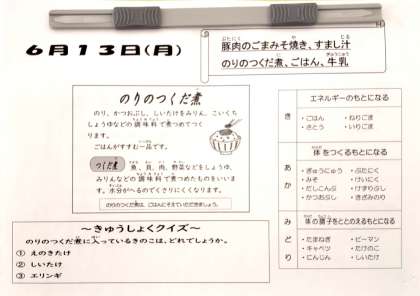 6月13日(月)
豚肉のごまみそ焼き、すまし汁
のりのつくだ煮、ごはん、牛乳
のりのつくだ煮
のり、かつおぶし、しいたけをみりん、こいくち
しょうゆなどの調味料で煮つめてつく
ります。
ごはんがすすむ一品です。
つくだ煮
魚、貝、肉、野菜などをしょうゆ、
みりんなどの調味料で煮つめたものをいいま
す。水分がへるのでくさりにくくなります。
のりのつくだ煮は、ごはんにそえていただきましょう。
～きゅうしょくクイズ～
のりのつくだ煮に入っているきのこは、どれでしょうか。
① えのきたけ
② しいたけ
③ エリンギ
き
エネルギーのもとになる
・ごはん ・ねりごま
・さとう ・いりごま
あか
体をつくるもとになる
・ぎゅうにゅう ・ぶたにく
・みそ ・けいにく
・だしこんぶ ・けずりぶし
・かつおぶし ・きざみのり
みどり
体の調子をととのえるもとになる
・たまねぎ ・ピーマン
・キャベツ ・たけのこ
・にんじん ・しいたけ